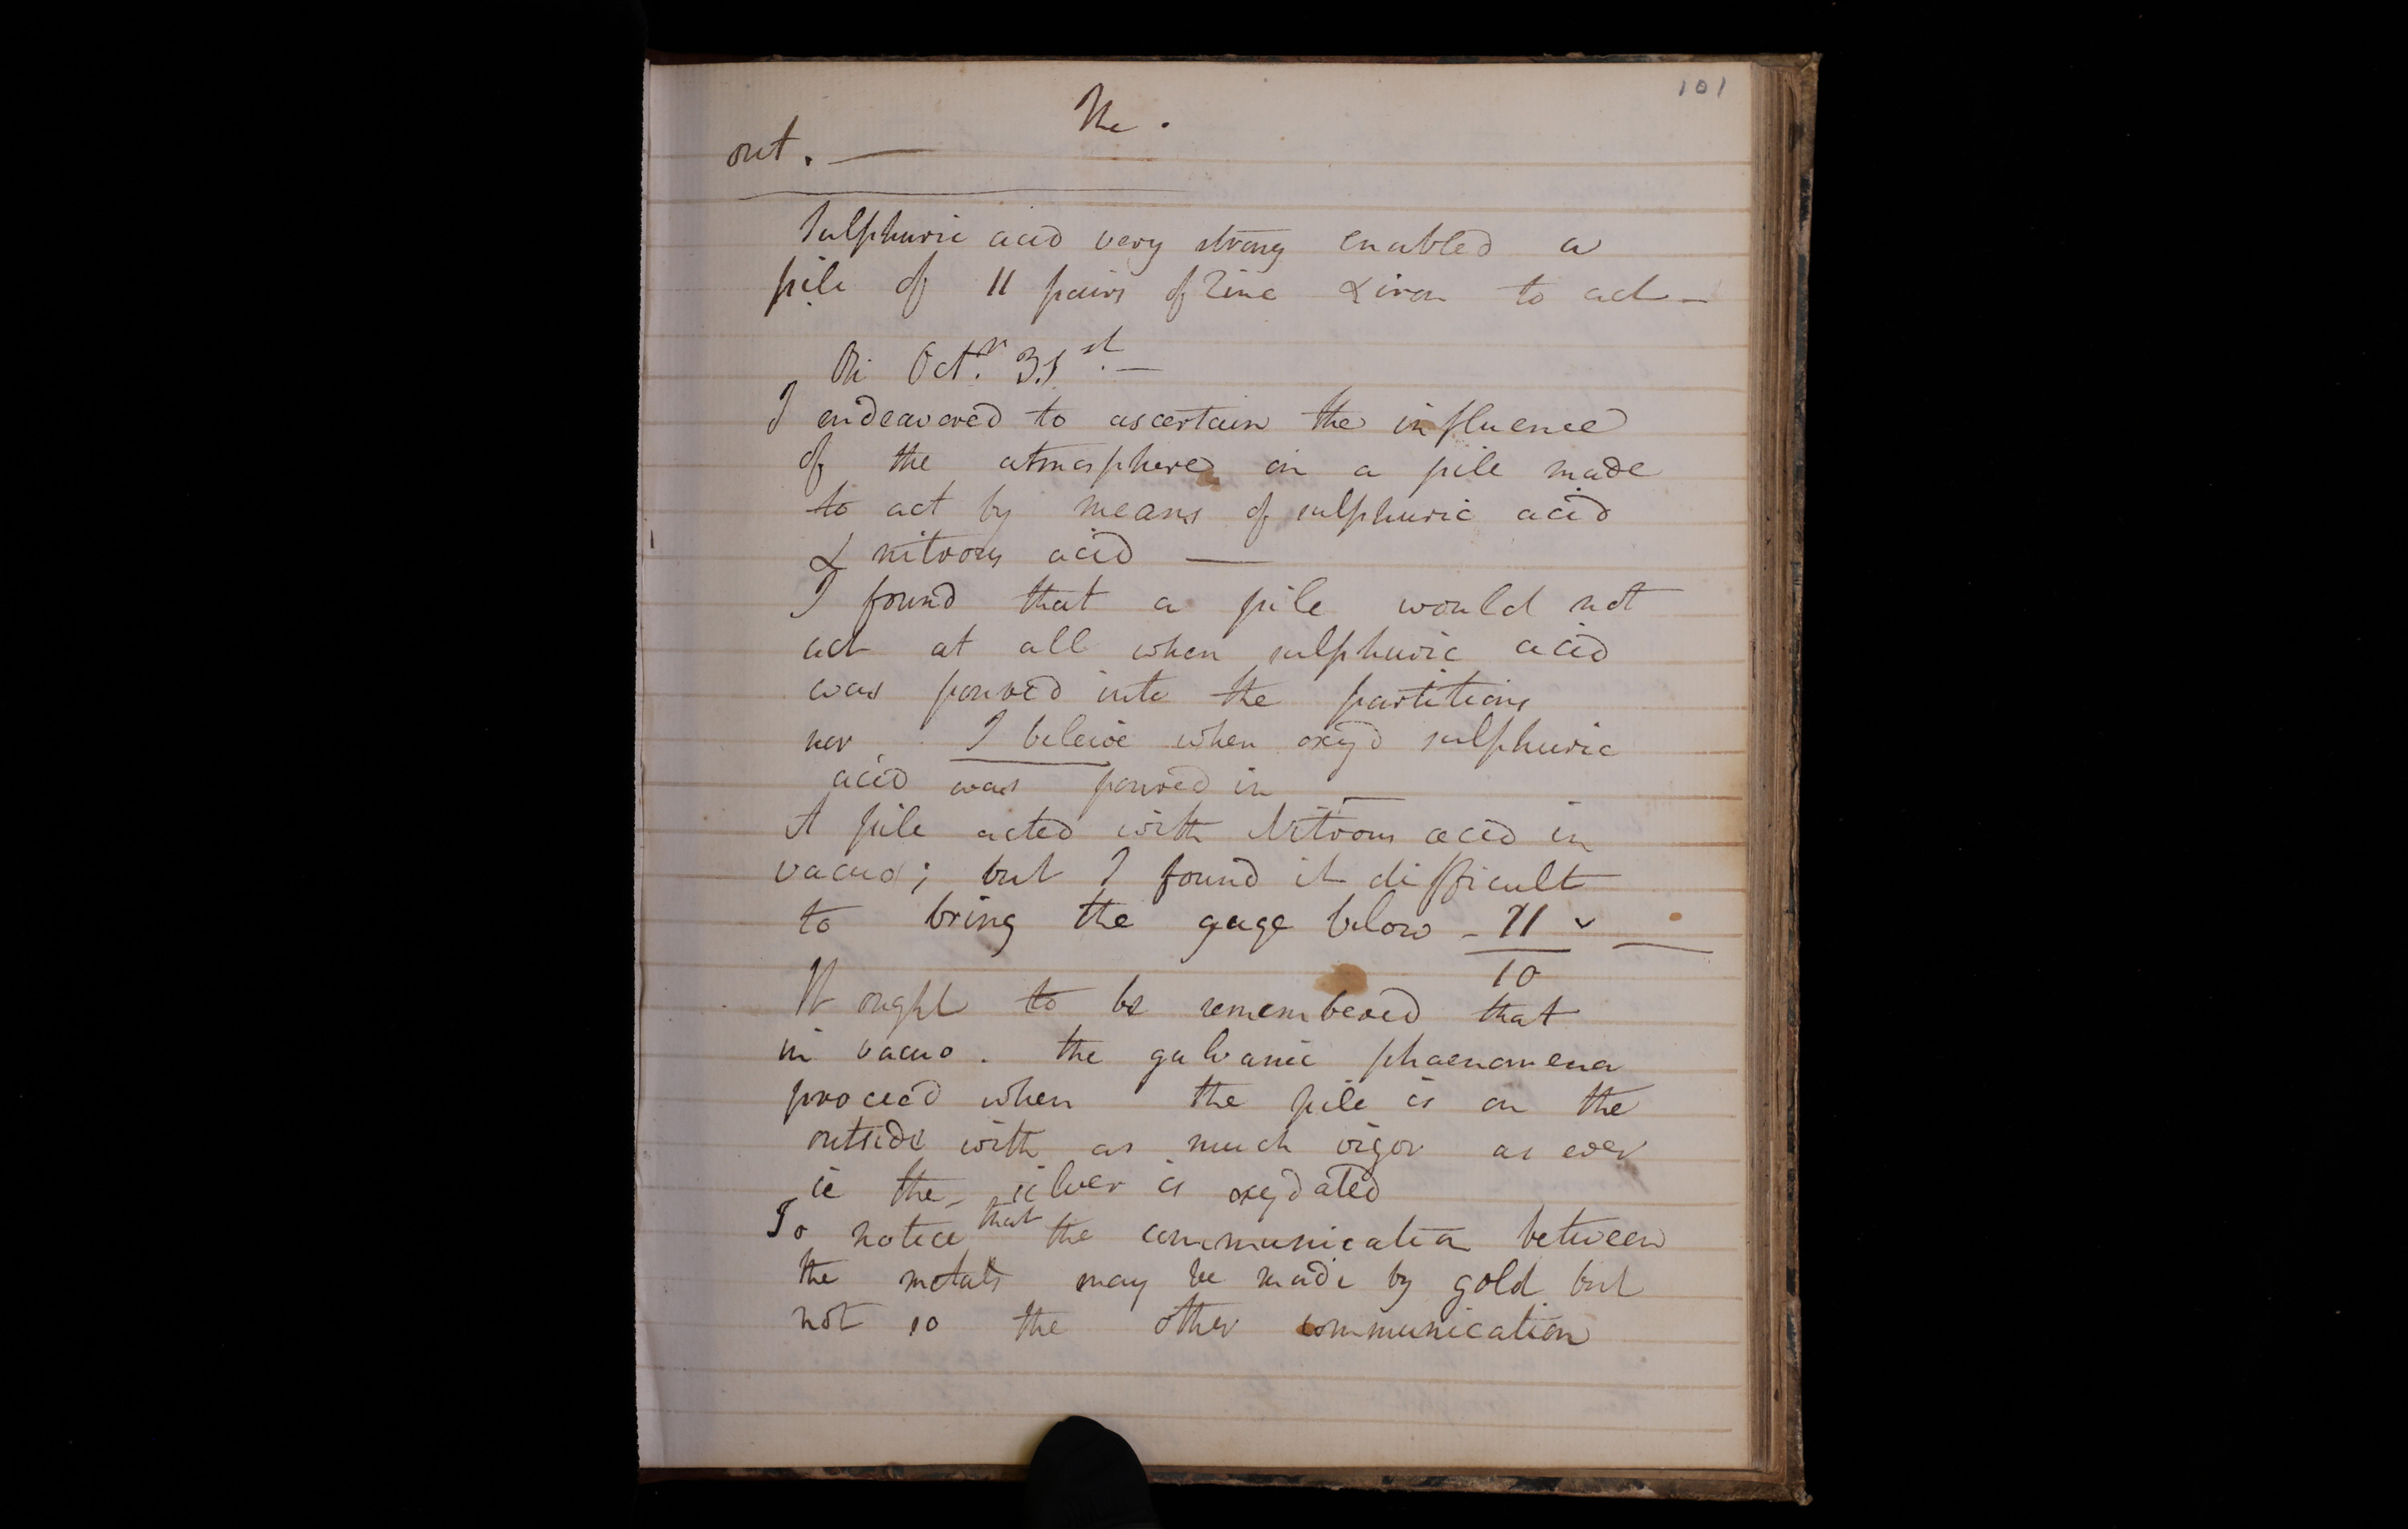 101
The .
out. —
Sulphuric acid very strong enabled a
pile of 11 pairs of Zinc & iron to act —
On Octr. 31st. —
I endeavored to ascertain the influence
of the atmosphere on a pile made
to act by means of sulphuric acid
& nitrous acid —
I found that a pile would not
act at all when sulphuric acid
was poured into the partitions
nor I beleive when oxyd sulphuric
acid was poured in —
A pile acted with Nitrous acid in
vacuo; but I found it difficult
to bring the gage below - 11 —
10
It ought to be remembered that
in vacuo. the galvanic phaenomena
proceed when the pile is on the
outside with as much vigor as ever
ie the silver is oxydated
To notice that the communication between
the metals may be made by gold but
not so the other communication